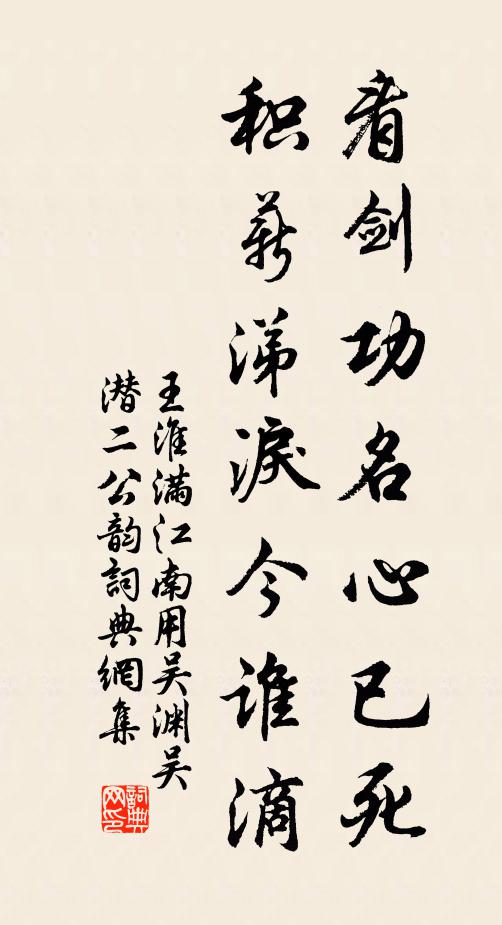 看剑功名心已死
积薪涕淚今谁滴
王淮满江南用吴渊吴
潜二公韵詞典網集
詞典网印